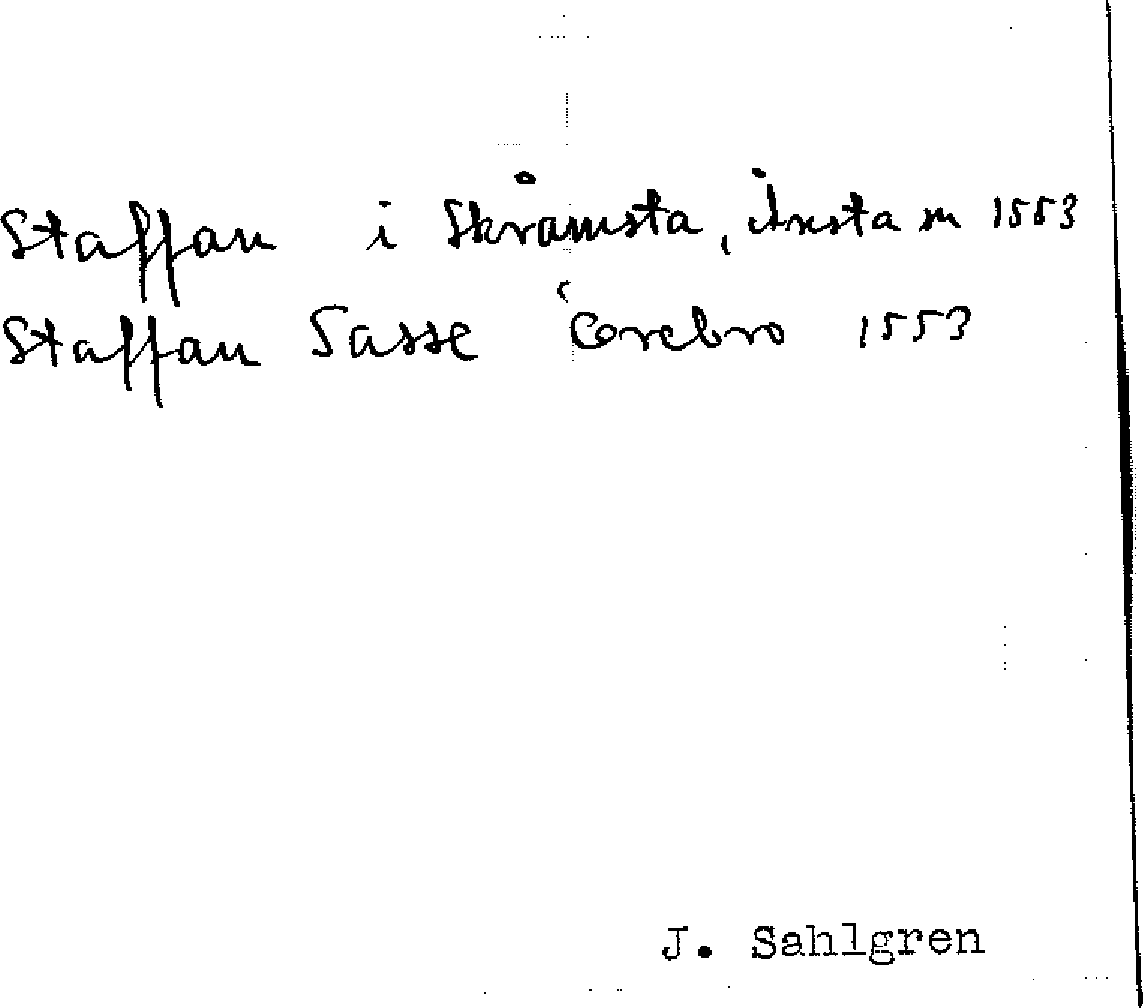 Staffan i Skråmsta, Ånsta sn 1553
Staffan Sasse Örebro 1553
J. Sahlgren